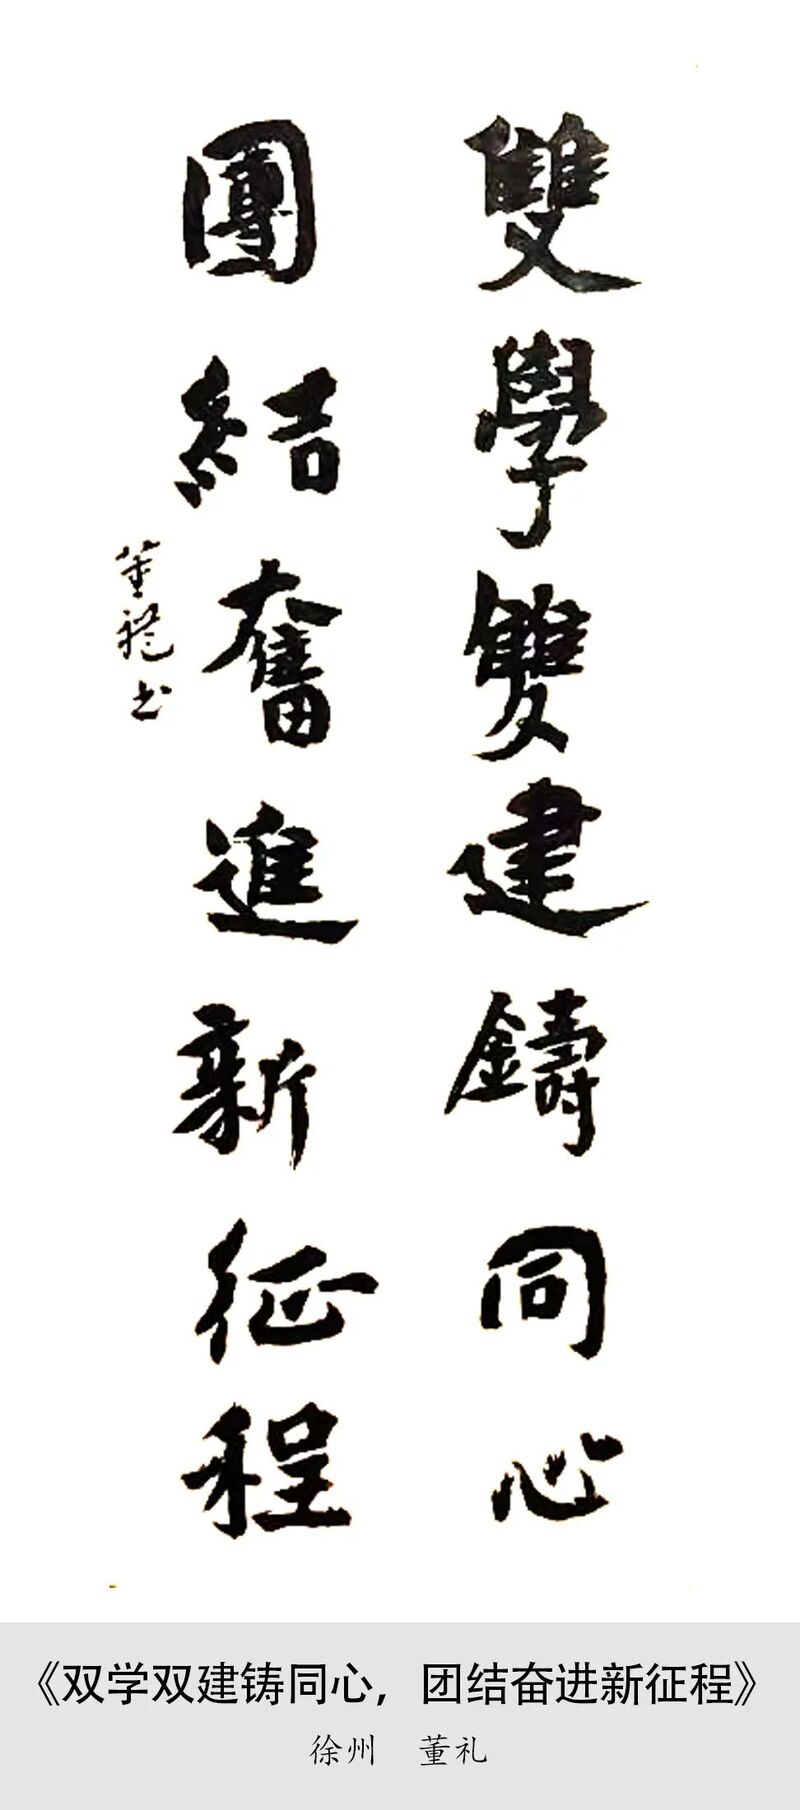 雙學雙建鑄同心
團結奮進新征程
董禮书
《双学双建铸同心，团结奋进新征程》
徐州 董礼